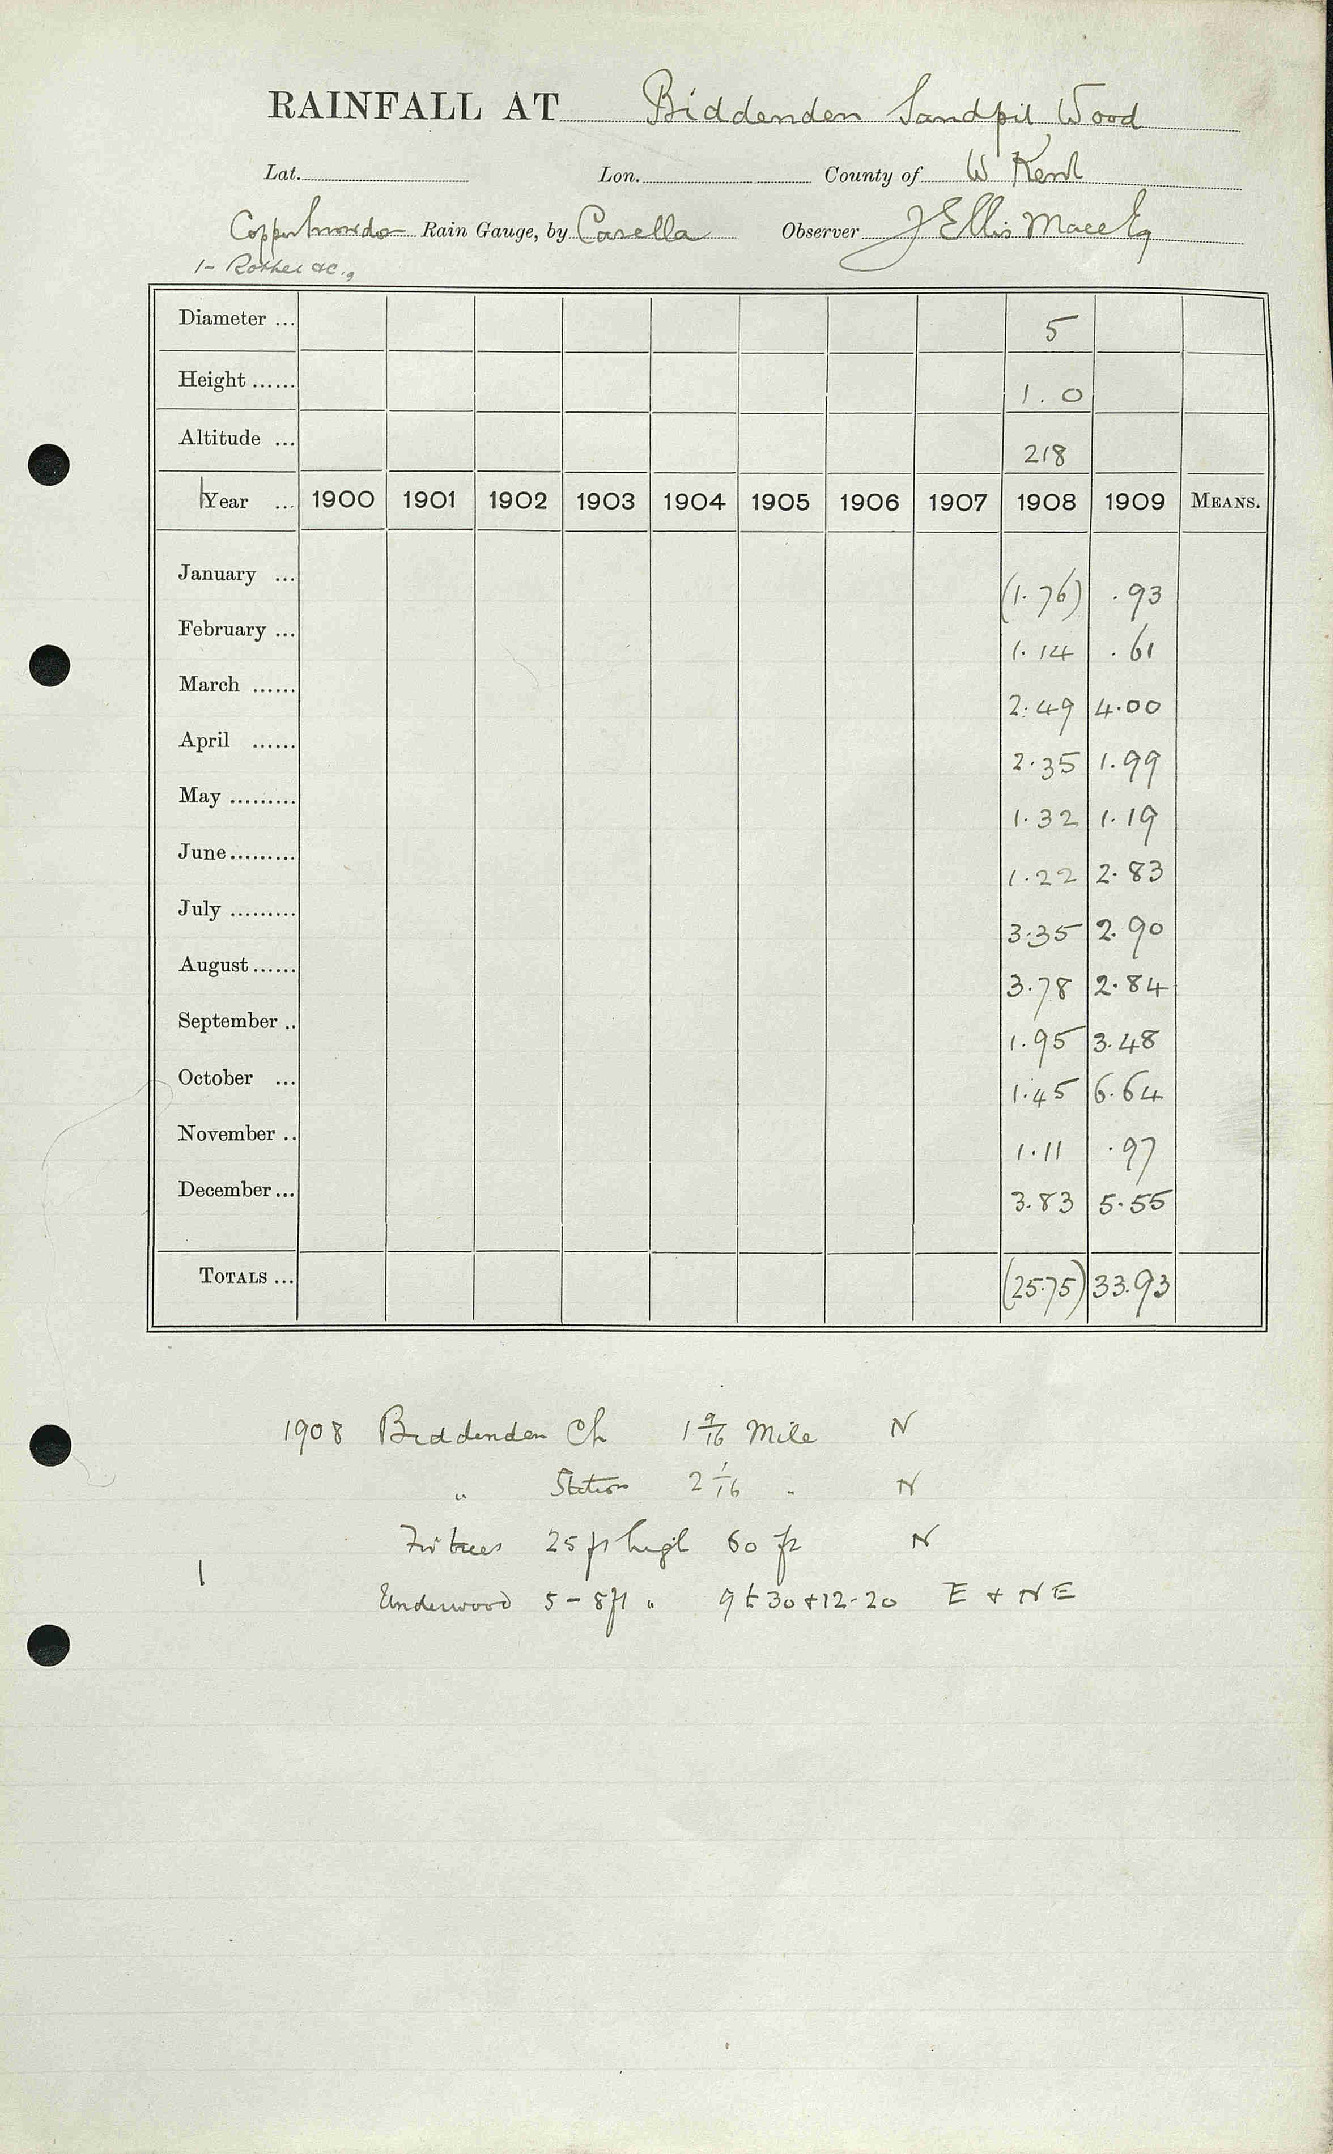 RAINFALL AT Biddenden Sandpit Wood
Lat. Lon. County of W Kent
Copper Snowdon Rain Gauge, by Casella Observer J Ellis Mace Esq
1- Rother &c.,
Diameter ... 5
Height ...... 1.0
Altitude ... 218
Year ... 1900 1901 1902 1903 1904 1905 1906 1907 1908 1909 MEANS.
January ... (1.76) .93
February ... 1.14 .61
March ...... 2.49 4.00
April ...... 2.35 1.99
May ......... 1.32 1.19
June ......... 1.22 2.83
July ......... 3.35 2.90
August ...... 3.78 2.84
September .. 1.95 3.48
October ... 1.45 6.64
November .. 1.11 .97
December ... 3.83 5.55
TOTALS ... (25.75) 33.93
1908 Biddenden Ch 1 9/16 Mile N
" Station 2 1/16 " N
Fir trees 25 ft high 60 ft N
Underwood 5-8ft " 9 to 30 + 12-20 E + NE